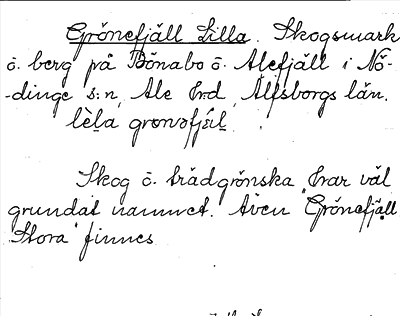 Grönefjäll Lilla. Skogsmark
o. berg på Bönabo o. Alefjäll i Nö-
-dinge s:n, Ale hrd, Älfsborgs län.
lèla
Skog o. trädgrönska har väl
grundat namnet. Även "Grönefjäll
Stora" finnes